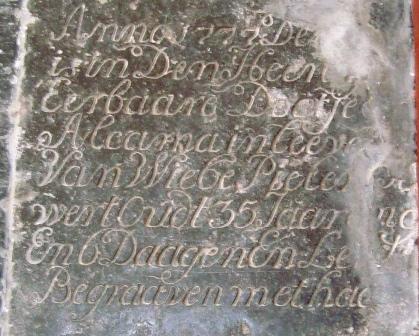 Anno 177 De
is in Den Heer
Eerbaare
in leeven
Van Wiebe Pieters
wert Oudt 35 Jaar
En 6 Daagen En Le
Begraaven met haa